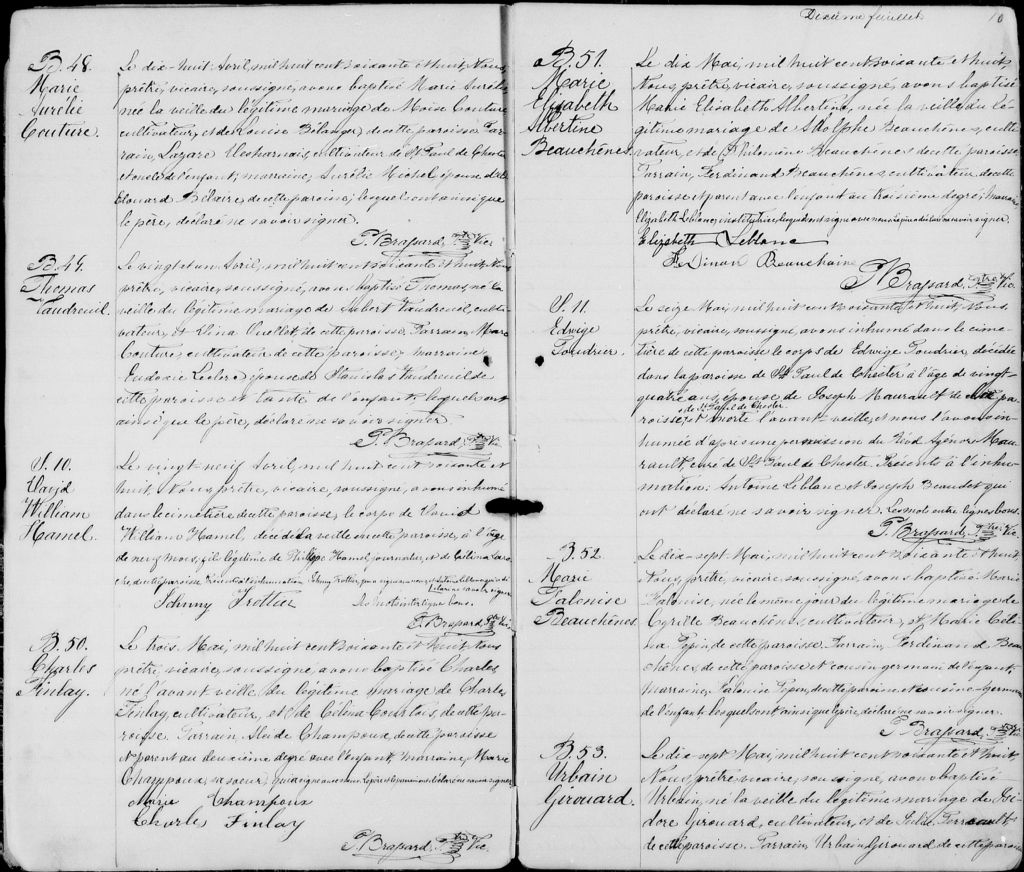 B. 48.
Marie
Aurélie
Couture.
Le dix-huit Avril, mil huit cent soixante et huit, Nous,
prêtre, vicaire, soussigné, avons baptisé Marie Aurélie,
née la veille du légitime mariage de Moïse Couture,
cultivateur, et de Louise Bélanger, de cette paroisse. Par-
rain, Lazare Desharnais, cultivateur de St Paul de Chester
et oncle de l'enfant; marraine, Aurélie Michel, épouse d'
Edouard Bélaire, de cette paroisse; lesquels ont ainsi que
le père, déclaré ne savoir signer.
P. Brassard, Ptre Vic.
B. 49.
Thomas
Vaudreuil.
Le vingt et un Avril, mil huit cent soixante et huit, Nous,
prêtre, vicaire, soussigné, avons baptisé Thomas, né la
veille du légitime mariage de Hubert Vaudreuil, culti-
vateur, et Lina Ouellet, de cette paroisse. Parrain, Marc
Couture, cultivateur de cette paroisse; marraine,
Eudoxie Leclerc, épouse de Stanislas Vaudreuil de
cette paroisse et tante de l'enfant, lesquels ont
ainsi que le père, déclaré ne savoir signer.
P. Brassard, Ptre Vic.
S. 10.
David
William
Hamel.
Le vingt neuf Avril, mil huit cent soixante et
huit, Nous, prêtre, vicaire, soussigné, avons inhumé
dans le cimetière de cette paroisse, le corps de David
William Hamel, décédé la veille en cette paroisse, à l'âge
de neuf mois, fils légitime de Philippe Hamel, journalier, et de Célina
de cette paroisse. Présents à l'inhumation Johnny Trottier, qui a signé avec nous, et Antoine Leblanc qui a
déclaré ne savoir signer
Johnny Trottier Les mots interligne bons.
P. Brassard, Ptre Vic.
B. 50.
Charles
Finlay.
Le trois Mai, mil huit cent soixante et huit, Nous,
prêtre, vicaire, soussigné, avons baptisé Charles,
né l'avant veille du légitime mariage de Charles
Finlay, cultivateur, et de Célina Courtois, de cette pa-
roisse. Parrain, Champoux, de cette paroisse
et parent au deuxième degré avec l'enfant; marraine, Marie
Champoux, sa soeur, qui a signé avec nous. Le père et le parrain ont déclaré ne savoir signer.
Marie Champoux
Charles Finlay
P. Brassard, Ptre Vic.
Dixième feuillet
10
B. 51.
Marie
Elizabeth
Albertine
Beauchênes.
Le dix Mai, mil huit cent soixante et huit,
Nous, prêtre, vicaire, soussigné, avons baptisé
Marie Elisabeth Albertine, née la veille du lé-
gitime mariage de Adolphe Beauchênes, culti-
vateur, et de Philomène Beauchênes de cette paroisse.
Parrain, Ferdinand Beauchênes, cultivateur, de cette
paroisse et parent avec l'enfant au troisième degré; marraine
Elizabeth Leblanc, institutrice, lesquels ont signé avec nous. Le père a déclaré ne savoir signer.
Elizabeth Leblanc
Ferdinan Beauchain
P. Brassard, Ptre Vic.
S. 11.
Edwige
Poudrier.
Le seize Mai, mil huit cent soixante et huit, Nous,
prêtre, vicaire, soussigné, avons inhumé dans le cime-
tière de cette paroisse le corps de Edwige Poudrier, décédée
dans la paroisse de St Paul de Chester à l'âge de vingt-
quatre ans, épouse de Joseph Maurault de pa-
de St Paul de Chester
roisse, et morte l'avant-veille, et nous l'avons in-
humée d'après une permission du Révd Agénor Mau-
rault, curé de St Paul de Chester. Présents à l'inhu-
mation: Antoine Leblanc et Joseph Beaudet qui
ont déclaré ne savoir signer. Les mots entre lignes bons.
P. Brassard, Ptre Vic.
B. 52.
Marie
Palonise
Beauchênes
Le dix-sept Mai, mil huit cent soixante et huit,
Nous, prêtre, vicaire soussigné, avons baptisé Marie
Palonise, née le même jour du légitime mariage de
Cyrille Beauchênes, cultivateur, et Marie Céli-
na Pepin, de cette paroisse. Parrain, Ferdinand Beau-
chênes, de cette paroisse et cousin germain de l'enfant;
marraine, Palonise Pepin, de cette paroisse, et cousine germaine
de l'enfant. Lesquels ont ainsi que le père, déclaré ne savoir signer.
P. Brassard, Ptre Vic.
B. 53.
Urbain
Girouard.
Le dix-sept Mai, mil huit cent soixante et huit,
Nous, prêtre, vicaire, soussigné, avons baptisé
Urbain, né la veille du légitime mariage de Isi-
dore Girouard, cultivateur, et de Julie Perreault
de cette paroisse. Parrain, Urbain Girouard de cette paroisse